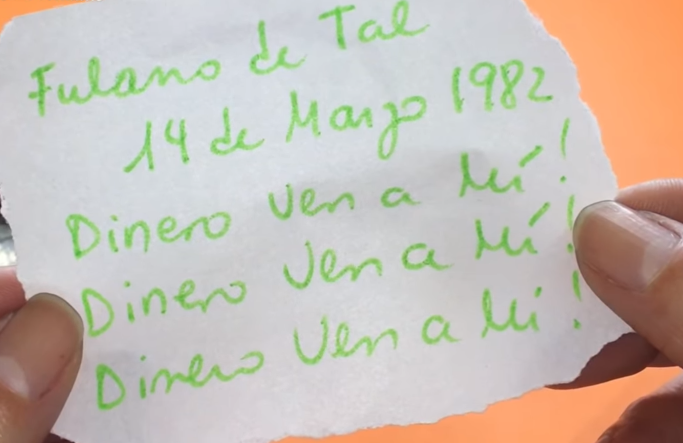 Fulano de Tal
14 de Marzo 1982
Dinero Ven a Mí!
Dinero Ven a Mí!
Dinero Ven a Mi!